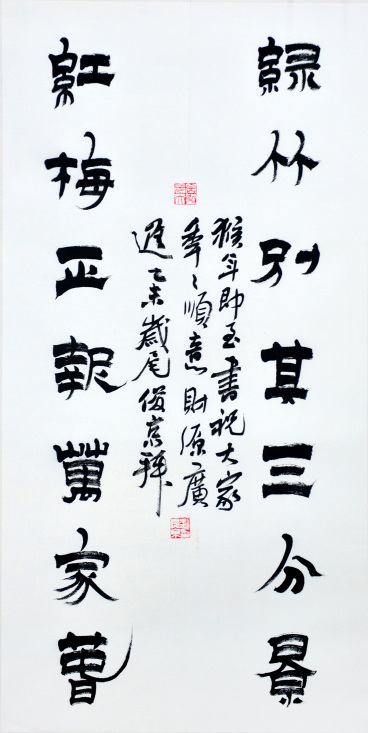 綠竹別其三分景
紅梅正報萬家萅
猴年即至書祝大家
年々順意財源廣
進乙未歲尾俊京拜